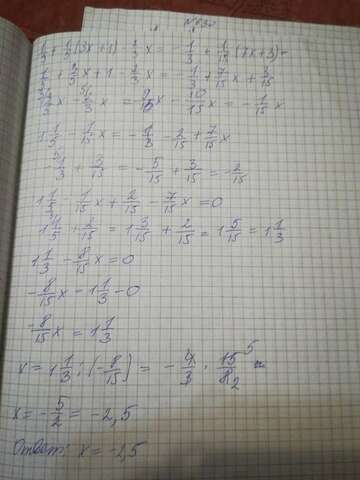 № 632
1/3 + 1/3(3x+1) - 2/3x = -1/3 + 1/15(7x+3) -
1/3 + 3/3x + 1 - 2/3x = -1/3 + 7/15x + 3/15
x - x = 9/15x - 10/15x = -1/15x
1 1/3 - 1/15x = -1/3 - 2/15 + 7/15x
-5/3 + 3/15 = -5/15 + 3/15 = -2/15
1 1/3 - 1/15x + 2/15 - 7/15x = 0
1 1/5 + 2/15 = 1 3/15 + 2/15 = 1 5/15 = 1 1/3
1 1/3 - 8/15x = 0
-8/15x - 1 1/3 - 0
-8/15x = 1 1/3
x = 1 1/3 : (-8/15) = -4/3 · 15/8 5 2 =
x = -5/2 = -2,5
Ответ: x = -2,5